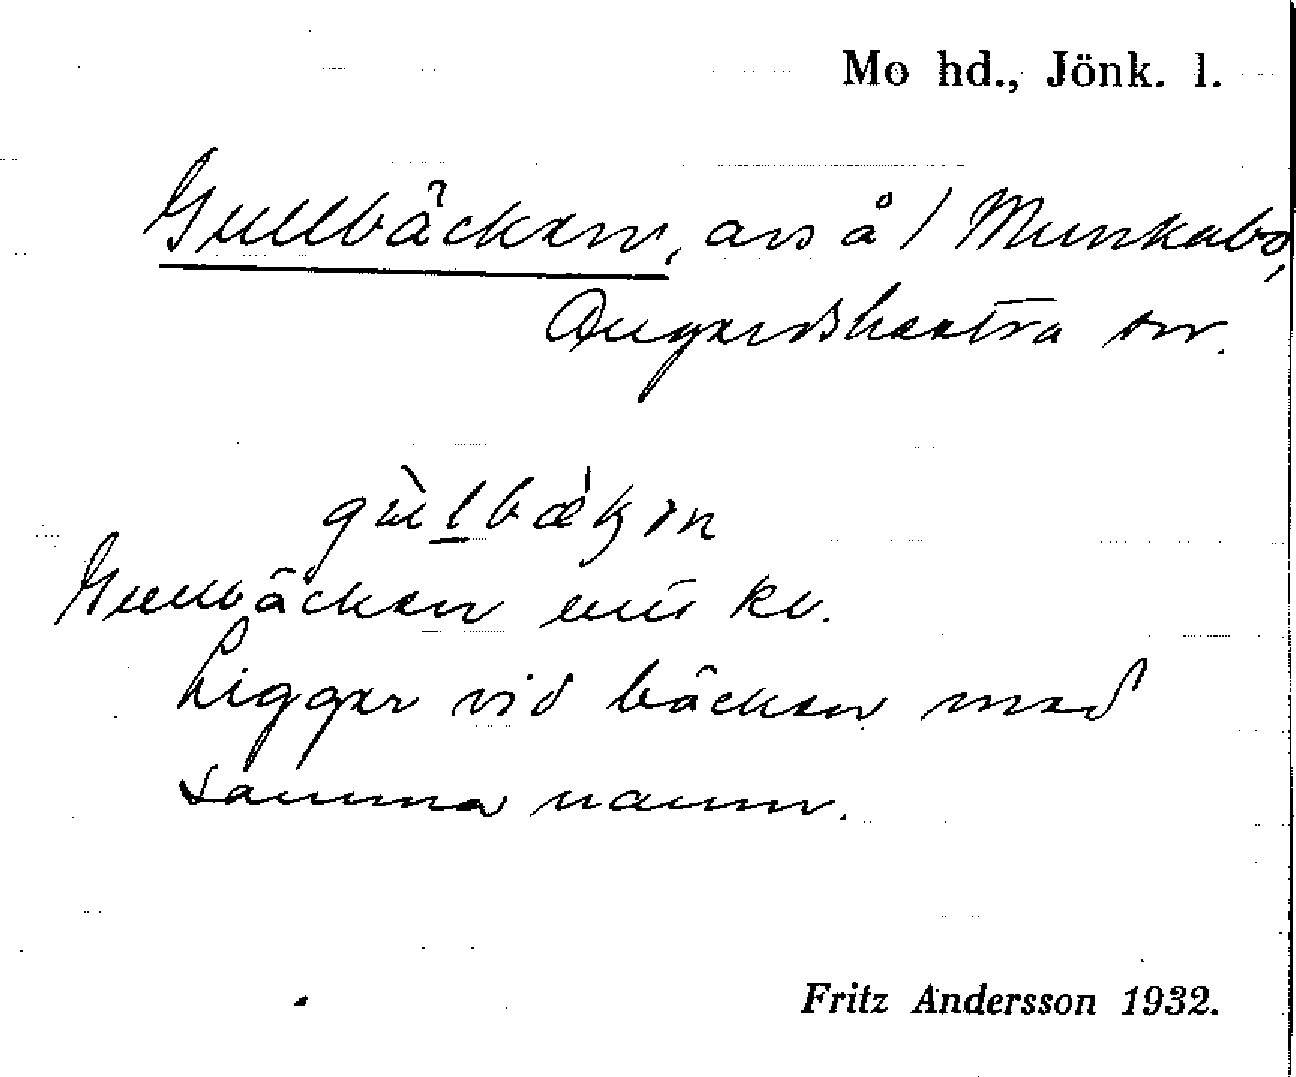 Mo hd., Jönk. l.
Gullbäcken, avs å / Munkabo,
Öngenäshestra sn.
gùlbækən
Gullbäcken uti kv.
Ligger vid bäcken med
samma namn.
Fritz Andersson 1932.